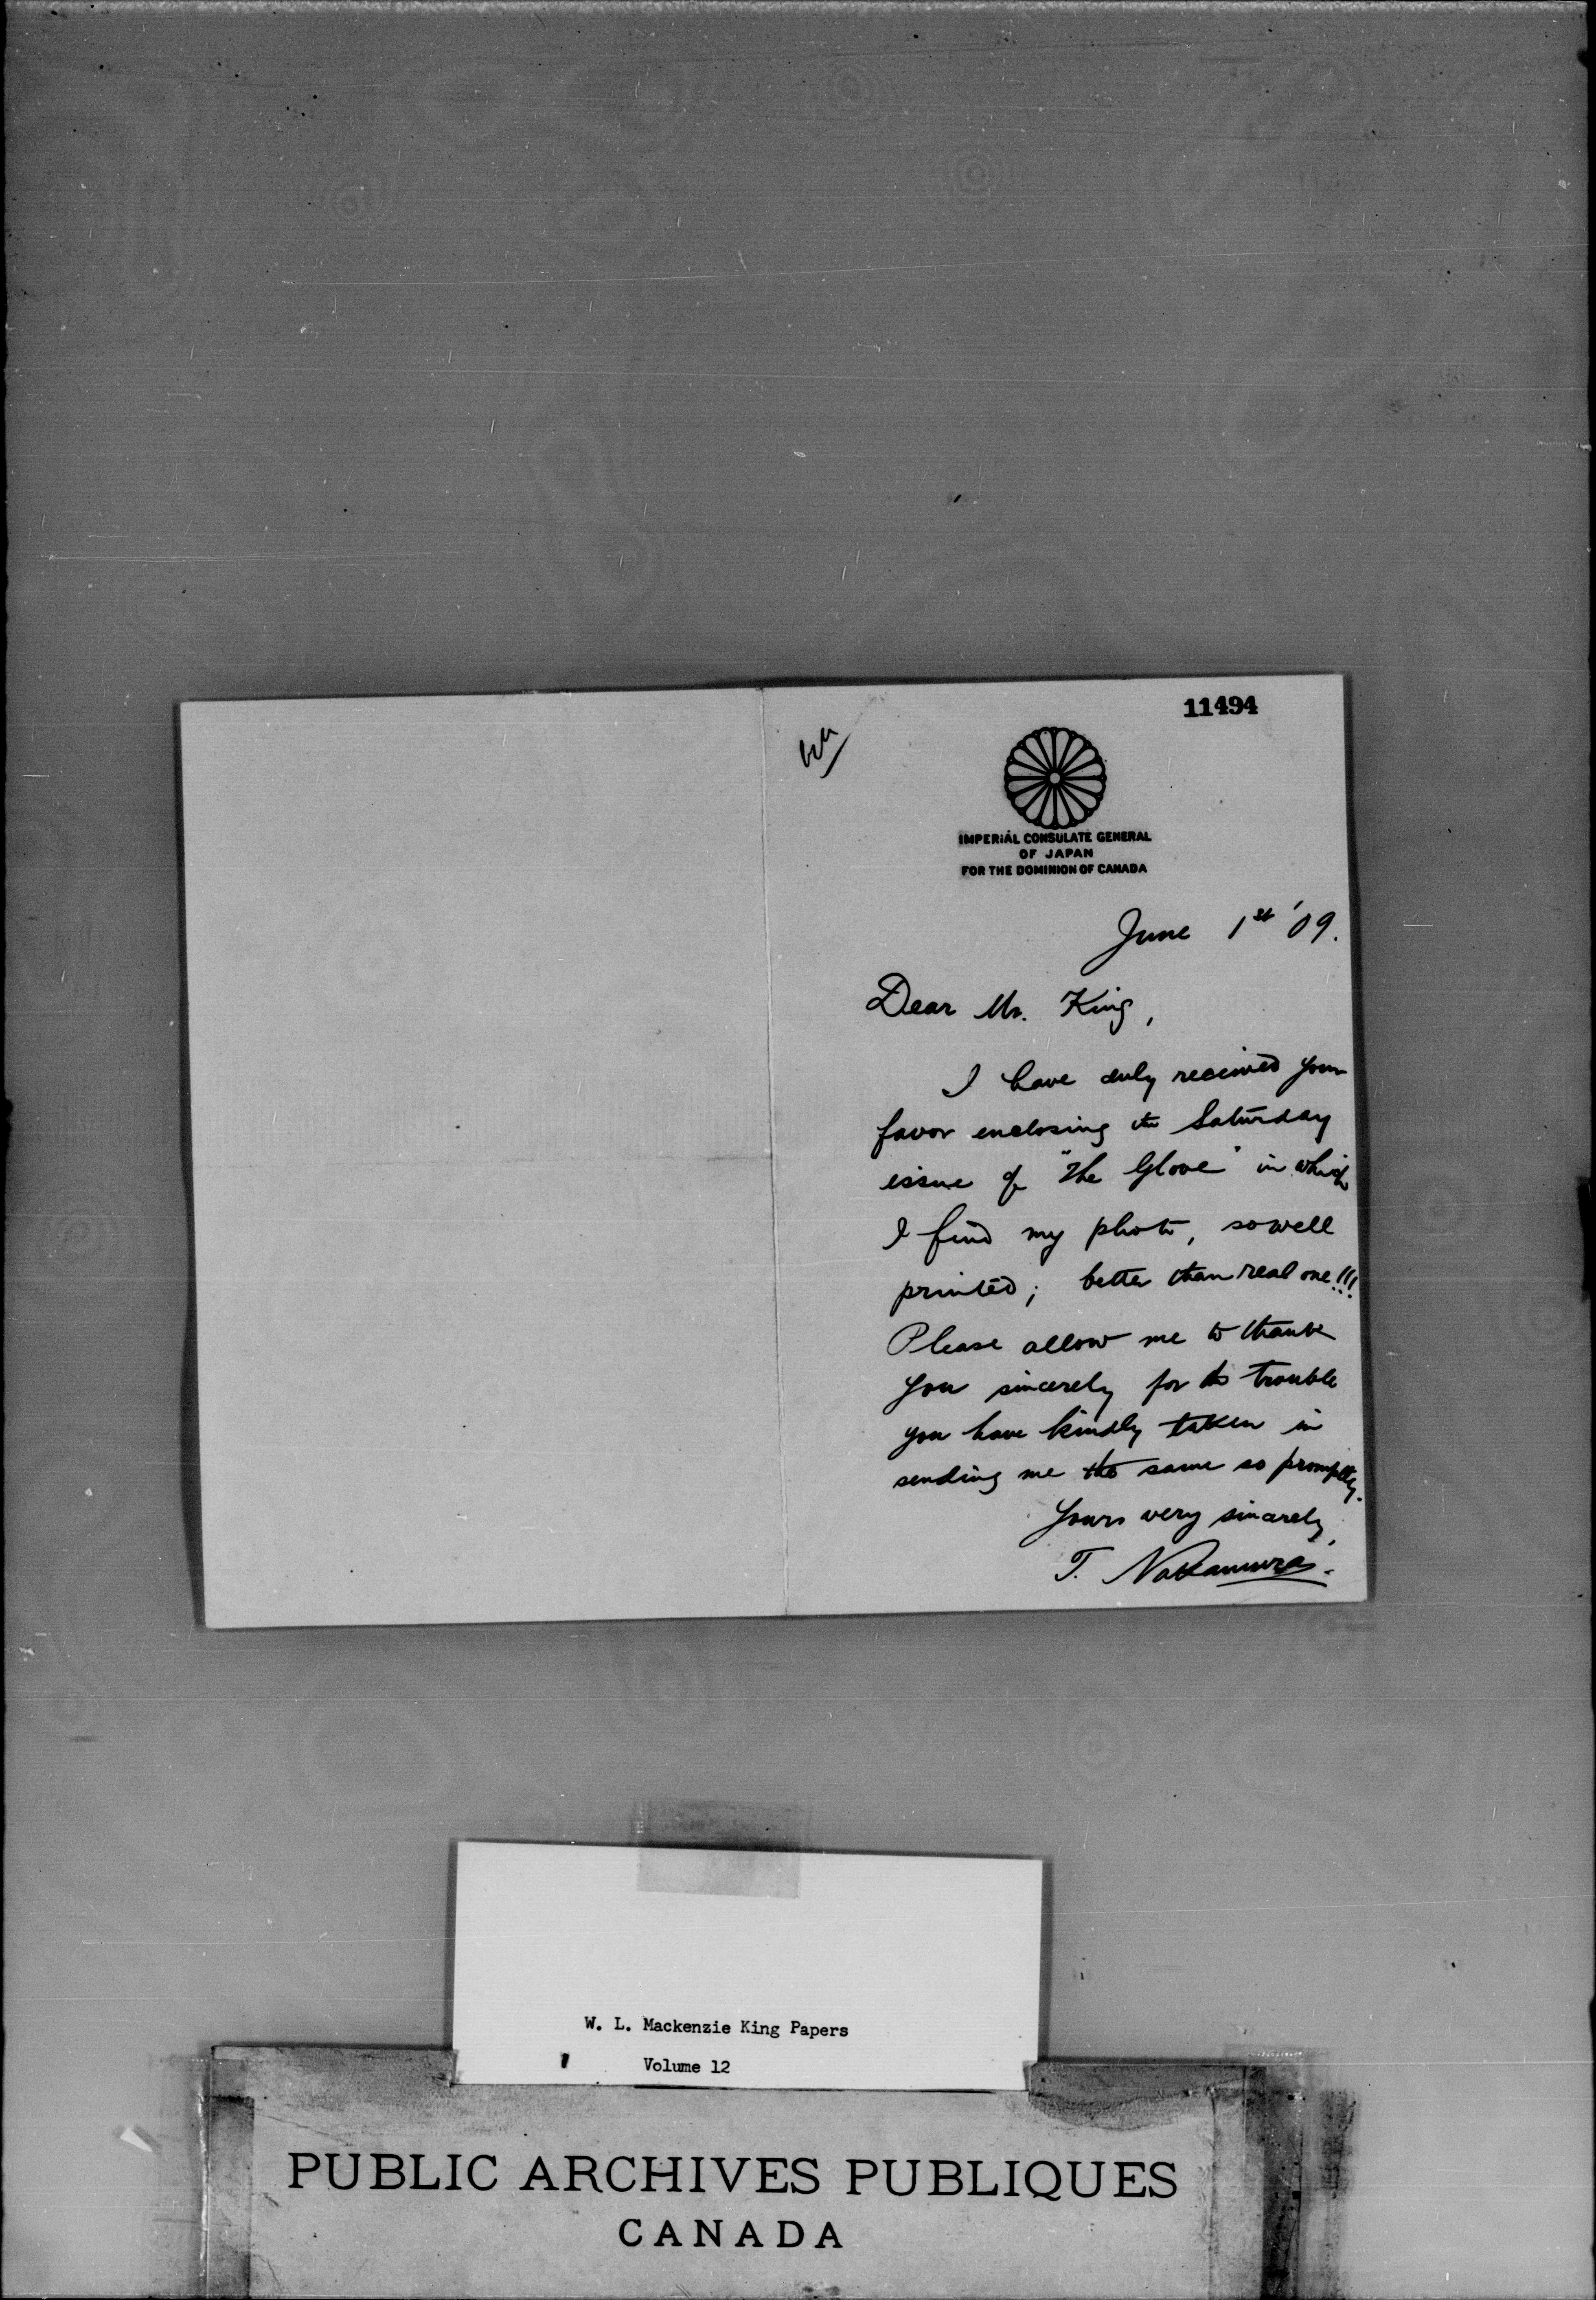 11494
IMPERIAL CONSULATE GENERAL
OF JAPAN
FOR THE DOMINION OF CANADA
June 1st '09.
Dear Mr. King,
I have duly received your
favor enclosing the Saturday
issue of "The Glove" in which
I find my photo, so well
printed; better than real one!!!
Please allow me to thank
you sincerely for the trouble
you have kindly taken in
sending me the same so promptly.
Yours very sincerely,
T. Nakamura.
W. L. Mackenzie King Papers
Volume 12
PUBLIC ARCHIVES PUBLIQUES
CANADA